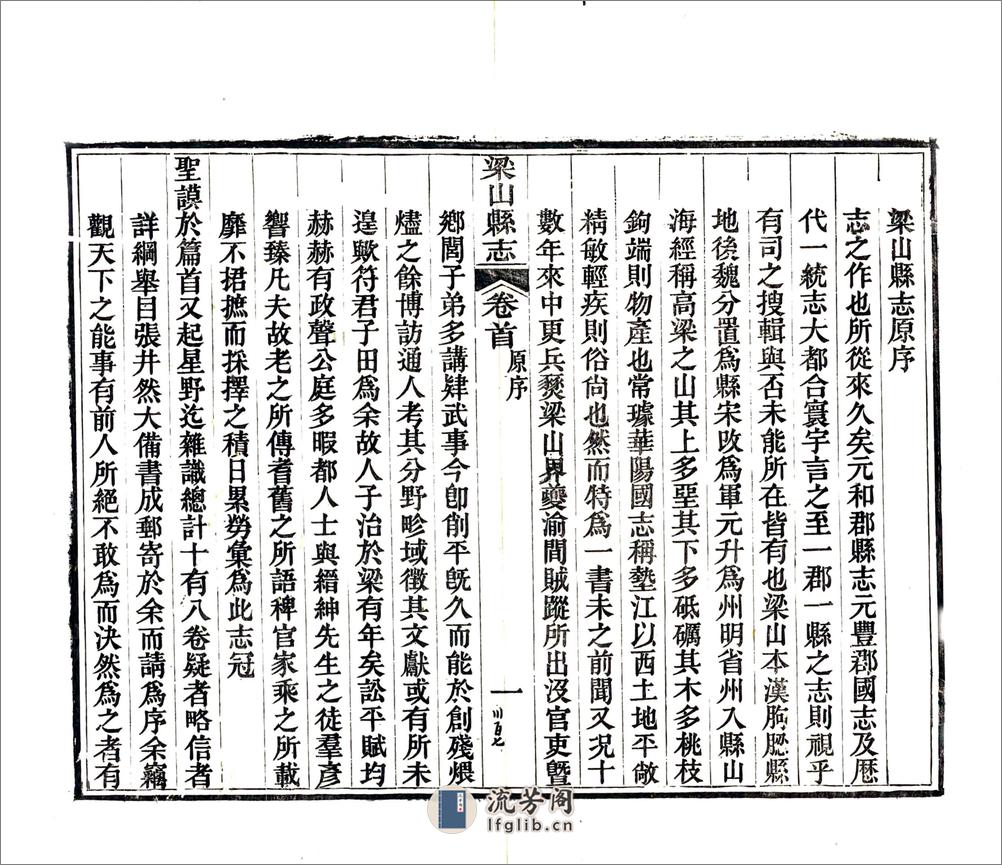 梁山縣志原序
志之作也所從來久矣元和郡縣志元豐郡國志及歷
代一統志大都合寰宇言之至一郡一縣之志則視乎
有司之搜輯與否未能所在皆有也梁山本漢朐䏰縣
地後魏分置為縣宋改為軍元升為州明省州入縣山
海經稱高梁之山其上多堊其下多砥礪其木多桃枝
鉤端則物產也常璩華陽國志稱墊江以西土地平敞
精敏輕疾則俗尚也然而特為一書未之前聞又況十
數年來中更兵燹梁山界夔渝間賊蹤所出沒官吏暨
梁山縣志 卷首 原序 一 川百七
鄉閭子弟多講肄武事今卽削平旣久而能於創殘煨
燼之餘博訪通人考其分野畛域徵其文獻或有所未
遑歟符君子田為余故人子治於梁有年矣訟平賦均
赫赫有政聲公庭多暇都人士與縉紳先生之徒羣彥
響臻凡夫故老之所傳耆舊之所語稗官家乘之所載
靡不捃摭而採擇之積日累勞彙為此志冠
聖謨於篇首又起星野迄雜識總計十有八卷疑者略信者
詳綱舉目張井然大備書成郵寄於余而請為序余竊
觀天下之能事有前人所絕不敢為而決然為之者有
流芳閣
lfglib.cn